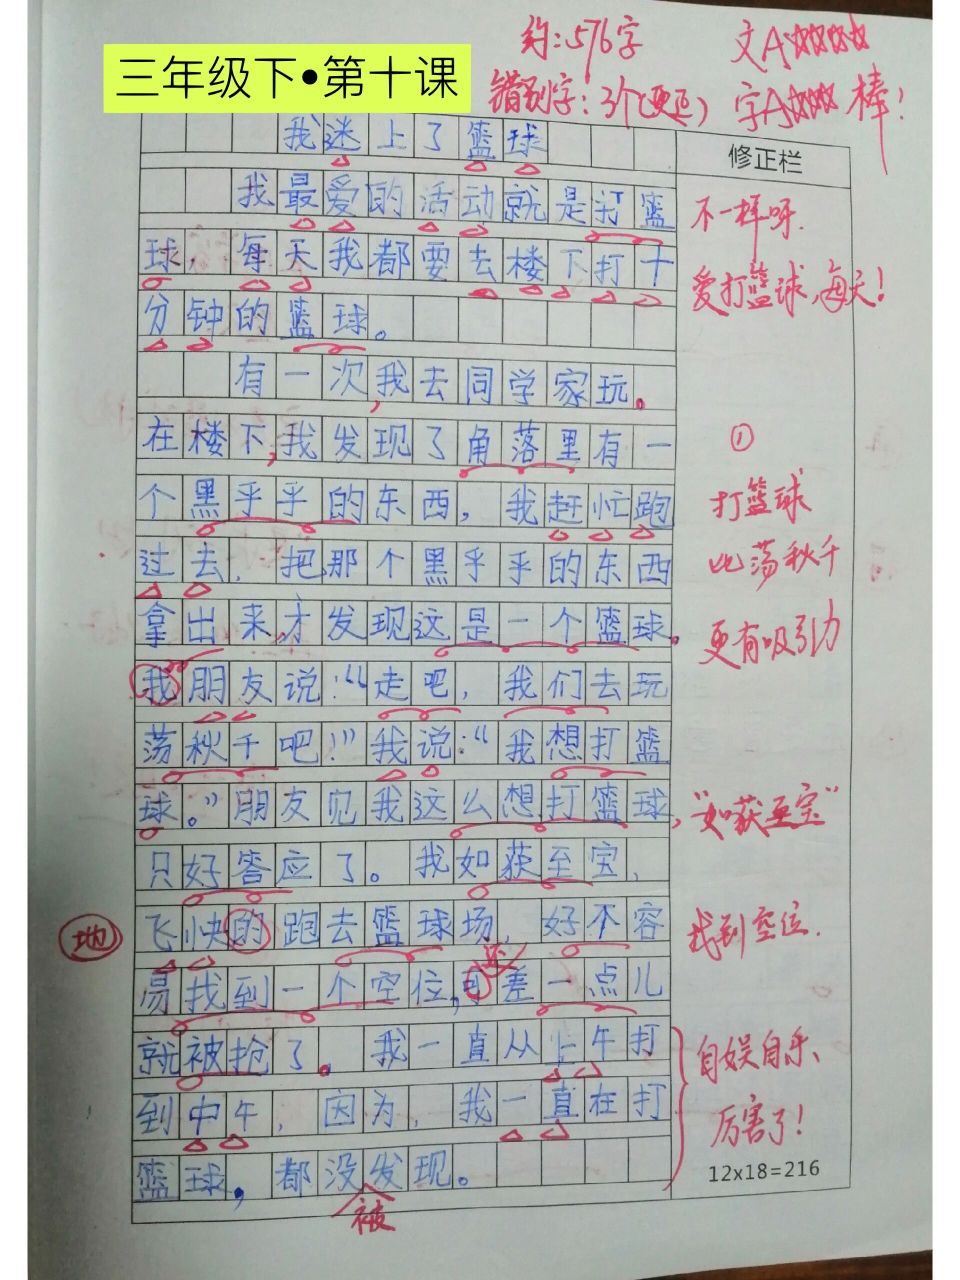 约:576字 文A☆☆☆☆
三年级下•第十课
错别字:3个(更正) 字A☆☆☆棒!
我迷上了篮球
修正栏
我最爱的活动就是打篮
不一样呀.
球,每天我都要去楼下打十
爱打篮球,每天!
分钟的篮球。
有一次,我去同学家玩。
在楼下,我发现了角落里有一
①
个黑乎乎的东西,我赶忙跑
打篮球
过去,把那个黑乎乎的东西
比荡秋千
拿出来,才发现这是一个篮球。
更有吸引力
我朋友说:“走吧,我们去玩
荡秋千吧!”我说:“我想打篮
球。”朋友见我这么想打篮球,
“如获至宝”
只好答应了。我如获至宝,
飞快的跑去篮球场,好不容
地
找到空位.
易找到一个空位,可差一点儿
就被抢了。我一直从上午打
自娱自乐、
到中午,因为,我一直在打
厉害了!
篮球,都没发现。
12x18=216
被